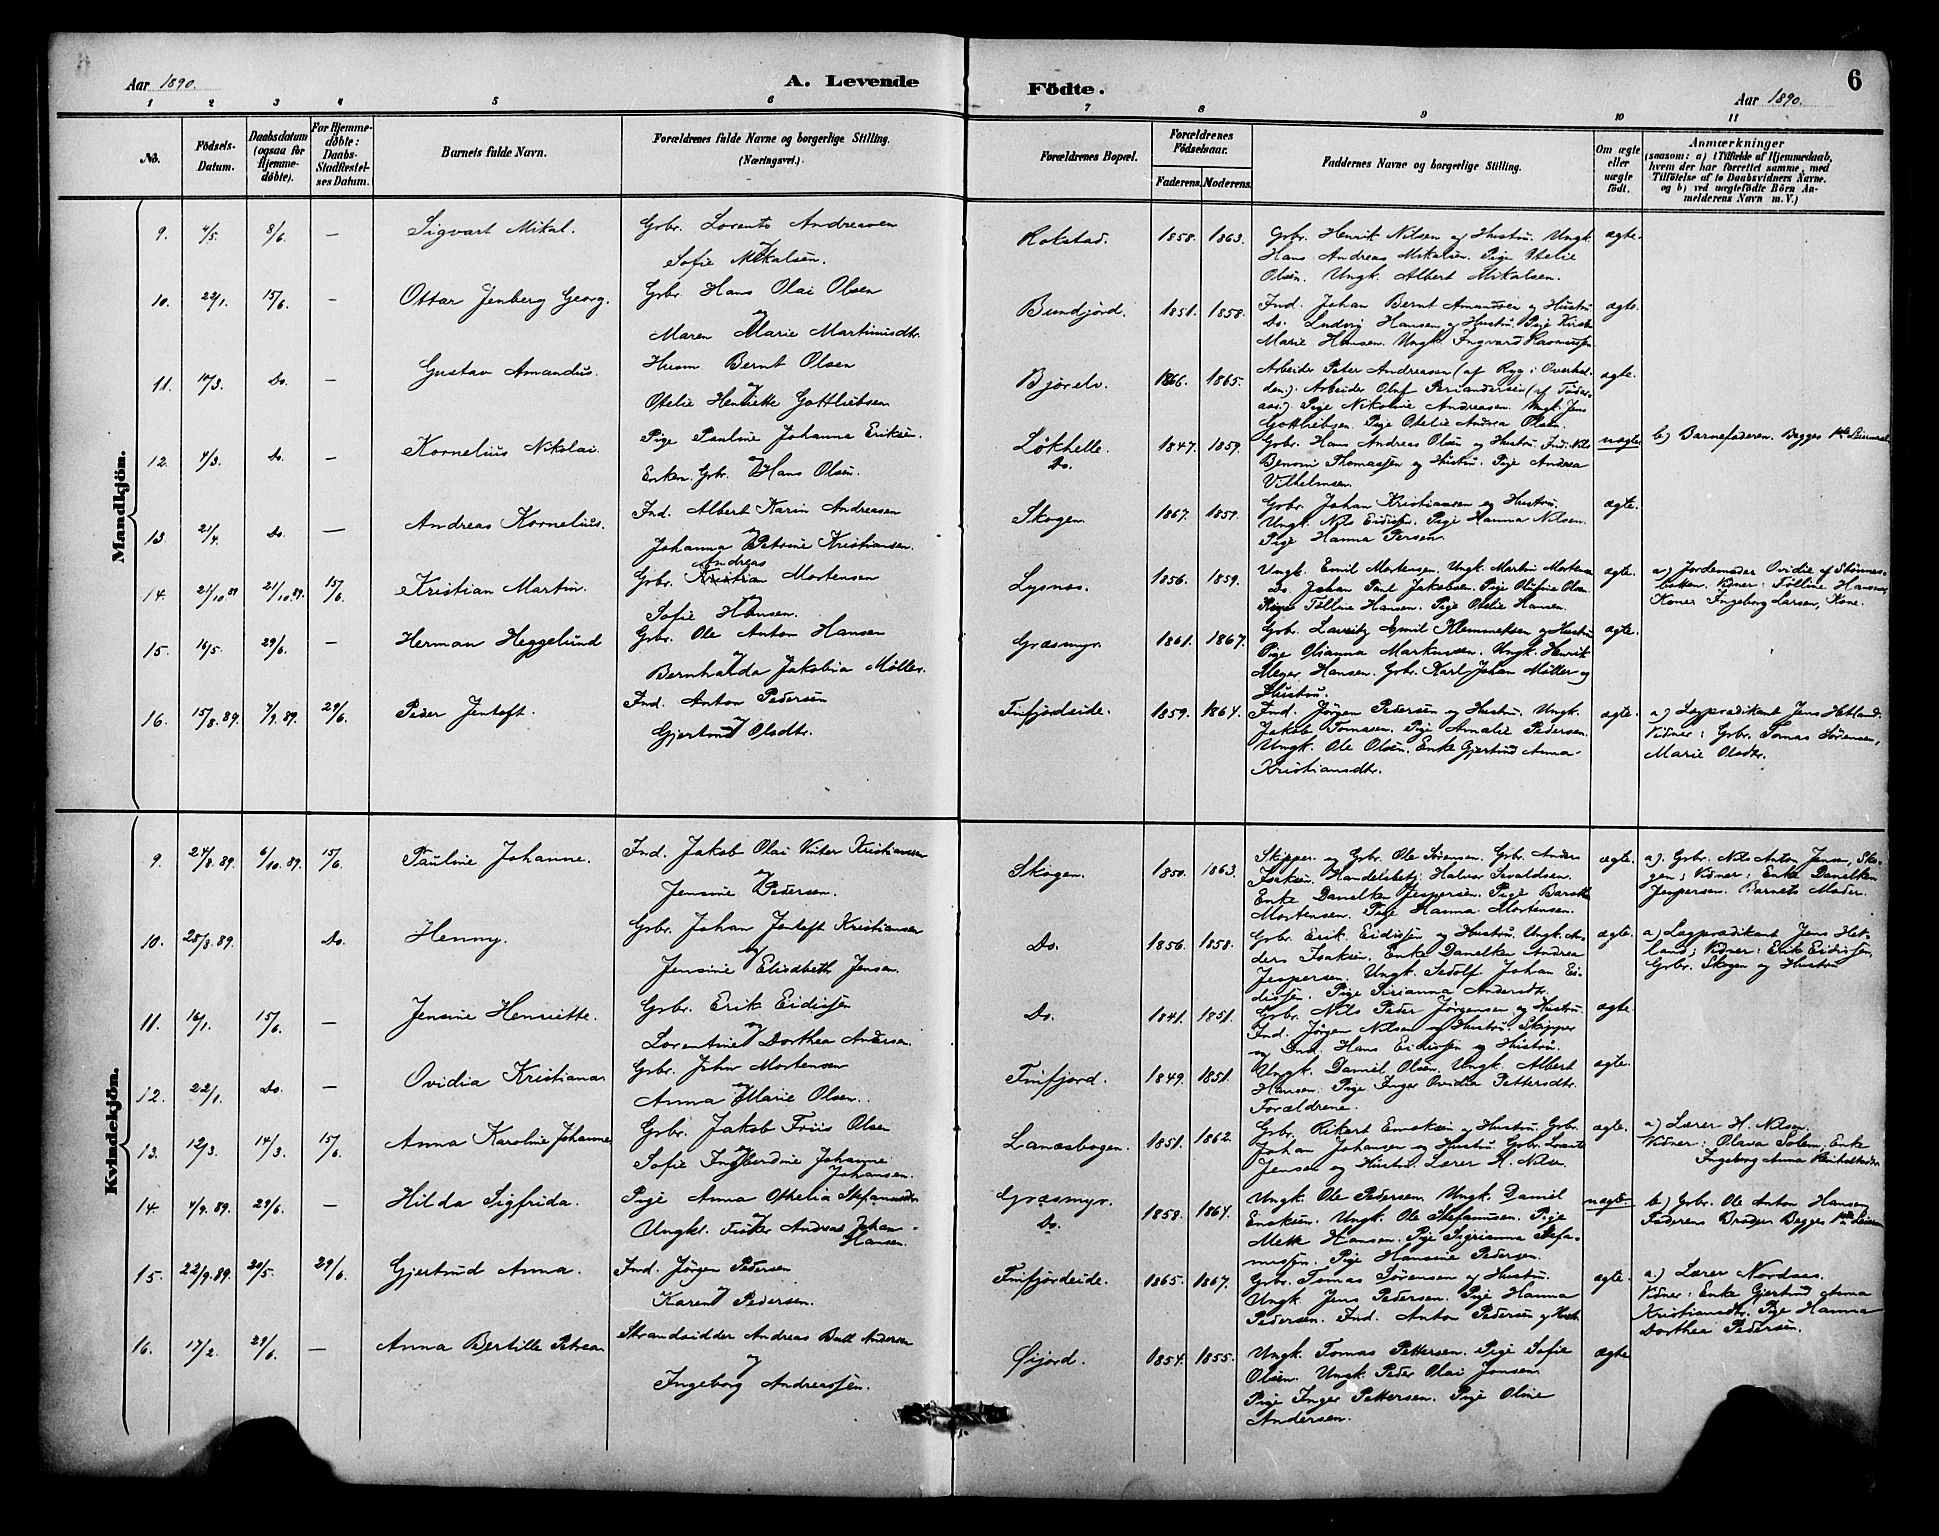 Aar 1890.
A. Levende
Födte.
6
Aar 1890.
1 2 3 4 5 6 7 8 9 10 11
No.
Födsels-Datum.
Daabsdatum (ogsaa for Hjemme-døbte).
For Hjemme-døbte: Daabs-Stadfæstel-ses Datum.
Barnets fulde Navn.
Forældrenes fulde Navne og borgerlige Stilling. (Næringsvei.)
Forældrenes Bopæl.
Forældrenes Födselsaar.
Faderens. Moderens.
Faddernes Navne og borgerlige Stilling.
Om ægte eller uægte födt.
Anmærkninger
(saasom: a) i Tilfælde af Hjemmedaab,
hvem der har forrettet samme, med
Tilföielse af to Daabsvidners Navne.
og b) ved uægtefödte Börn An-
melderens Navn m.V.)
Mandkjön.
9. 4/5. 8/6. — Sigvart Mikal. Gbr. Lorents Andreasen
og
Sofie Mikalsen.
Rokstad. 1858. 1863. Gbr. Henrik Nilsen og Hustru. Ungk.
Hans Andreas Mikalsen. Pige Otelie
Olsen. Ungk. Albert Mikalsen.
ægte.
10. 22/1. 15/6. — Ottar Jenberg Georg. Gbr. Hans Olai Olsen
og
Maren Marie Martinusdtr.
Bundjord. 1851. 1858. Ind. Johan Bernt Amundsen og Hustru
Do. Ludvig Hansen og Hustru. Pige
Marie Hansen. Ungk. Ingvard Rasmussen
ægte.
11. 10/3. Do. — Gustav Amandus. Husm. Bernt Olsen
og
Otelie Henriette Gottliebsen
Bjørelv. 1866. 1865. Arbeider Peder Andreasen (af Ryg i Overhal-
den.) Arbeider Oluf Periandersen (af
Pige Nikoline Andreasen. Ungk. Jens
Gottliebsen. Pige Otelie Andrea Olsen.
ægte.
12. 4/3. Do. — Kornelius Nikolai Pige Pauline Johanna Eriksen.
og
Enkem. Gbr. Hans Olsen.
Løkhelle.
Do.
1847. 1859. Gbr. Hans Andreas Olsen og Hustru. Ind. Nils
Benoni Thomassen og Hustru. Pige Andrea
Vilhelmsen.
uægte b) Barnefaderen. Begges 1ste Leiermaal
13. 21/4. Do. — Andreas Kornelius. Ind. Albert Karin Andreasen
og
Johanna Petrine Kristiansen.
Skogen. 1867. 1859. Gbr. Johan Kristiansen og Hustru.
Ungk. Nils Eidissen. Pige Hanna Nilsen.
Pige Hanna Persen.
ægte.
14. 21/10 89 21/10.89. 15/6. Kristian Martin. Andreas
Gbr. Kristian Mortensen
og
Sofie Hansen.
Lysnes. 1856. 1859. Ungk. Emil Mortensen. Ungk. Martin Mortensen
Do. Johan Paul Jakobsen. Pige Olufine Olsen
Pige Følline Hansen. Pige Otelie Hansen.
ægte. a) Jordemoder Ovidie af Stønnes-
botten. Vidner: Følline Hansen,
Kone. Ingeborg Larsen, Kone.
15. 16/5. 29/6. — Herman Heggelund Gbr. Ole Anton Hansen
og
Bernharda Jakobia Møller.
Græsmyr. 1861. 1867. Gbr. Lauritz Emil Klemmetsen og Hustru
Pige Olianna Markussen. Ungk. Henrik
Meyer Hansen. Gbr. Karl Johan Müller og
Hustru.
ægte.
16. 15/8.89. 1/9.89. 29/6. Peder Jentoft. Ind. Anton Pedersen
og
Gjertrud Olsdtr.
Finfjordeide. 1859. 1864. Ind. Jørgen Pedersen og Hustru. Ungk.
Jakob Tomasen. Pige Amalie Pedersen.
Ungk. Ole Olsen. Enke Gjertrud Anna
Kristiansdtr.
ægte. a) Lægprædikant Jens Hetland.
Vidner: Gbr. Tomas Sørensen,
Marie Olsdtr.
Kvindekjön.
9. 24/8.89. 6/10.89. 15/6. Pauline Johanne. Ind. Jakob Olai Vinter Kristiansen
og
Jensine Pedersen.
Skogen. 1850. 1863. Skipper og Gbr. Ole Sørensen. Gbr. Anders
Isaksen. Handelsbetj. Halvor Sivaldsen.
Enke Danelken Jespersen. Pige
Mortensen. Pige Hanna Mortensen.
ægte. a). Gbr. Nils Anton Jensen, Sko-
gen; Vidner: Enke Danelken
Jespersen. Barnets Moder.
10. 28/8.89. Do. Henny. Gbr. Johan Jentoft Kristiansen
og
Jensine Elisabeth Jensen.
Do. 1856. 1858. Gbr. Erik Eidissen og Hustru. Ungk. An-
ders Isaksen. Enke Danelken Andrea
Jespersen. Ungk. Sedolf Johan Ei-
dissen. Pige Sirianna Andersdtr.
ægte. a) Lægprædikant Jens Het-
land; Vidner: Erik Eidissen,
Gbr. Skogen og Hustru
11. 14/1. 15/6. — Jensine Henriette. Gbr. Erik Eidissen
og
Lorentine Dorthea Andersen.
Do. 1841. 1851. Gbr. Nils Peder Jørgensen og Hustru.
Ind. Jørgen Nilsen og Hustru. Skipper
og Ind. Hans Eidissen og Hustru.
ægte.
12. 22/1. Do. — Ovidia Kristiana. Gbr. John Mortensen
og
Anna Marie Olsen.
Finfjord. 1849. 1851. Ungk. Daniel Olsen. Ungk. Albert
Hansen. Pige Inger Ovidia Pettersdtr.
Forældrene.
ægte.
13. 12/3. 14/3. 15/6. Anna Karoline Johanne Gbr. Jakob Friis Olsen
og
Sofie Ingberdine Johanne
Johansen.
Lanesbogen. 1851. 1862. Gbr. Rikert Enoksen og Hustru. Gbr.
Johan Johansen og Hustru. Gbr. Lorents
Jensen og Hustru. Lærer H. Nilsen.
ægte. a) Lærer H. Nilsen.
Vidner: Olava Solem. Enke
Ingeborg Anna
14. 4/9.89. 29/6. — Hilda Sigfrida. Pige Anna Othelia Stefanusdtr.
og
Ungkl. Fisker Andreas Johan
Hansen.
Græsmyr.
Do.
1858. 1864. Ungk. Ole Pedersen. Ungk. Daniel
Enoksen. Ungk. Ole Stefanusen. Pige
Mette Hansen. Pige Sigrianna Stefa-
nussen. Pige Hansine Pedersen.
uægte b) Gbr. Ole Anton Hansen,
Faderens Broder. Begges 1ste
15. 22/9.89. 20/5. 29/6. Gjertrud Anna. Ind. Jørgen Pedersen
og
Karen Pedersen.
Finfjordeide. 1865. 1867. Gbr. Tomas Sørensen og Hustru.
Ungk. Jens Pedersen. Pige Hanna
Pedersen. Ind. Anton Pedersen og Hustr.
ægte. a.) Lærer Nordaas.
Vidner: Enke Gjertrud Anna
Kristiansdtr. Pige Hanna
Dorthea Pedersen.
16. 17/2. 29/6. — Anna Bertille Petrea Strandsidder Andreas Bull Andersen
og
Ingeborg Andreassen.
Øijord. 1854. 1855. Ungk. Tomas Pettersen. Pige Sofie
Olsen. Ungk. Peder Olai Jonsen.
Pige Inger Pettersen. Pige Oline
Andersen.
ægte